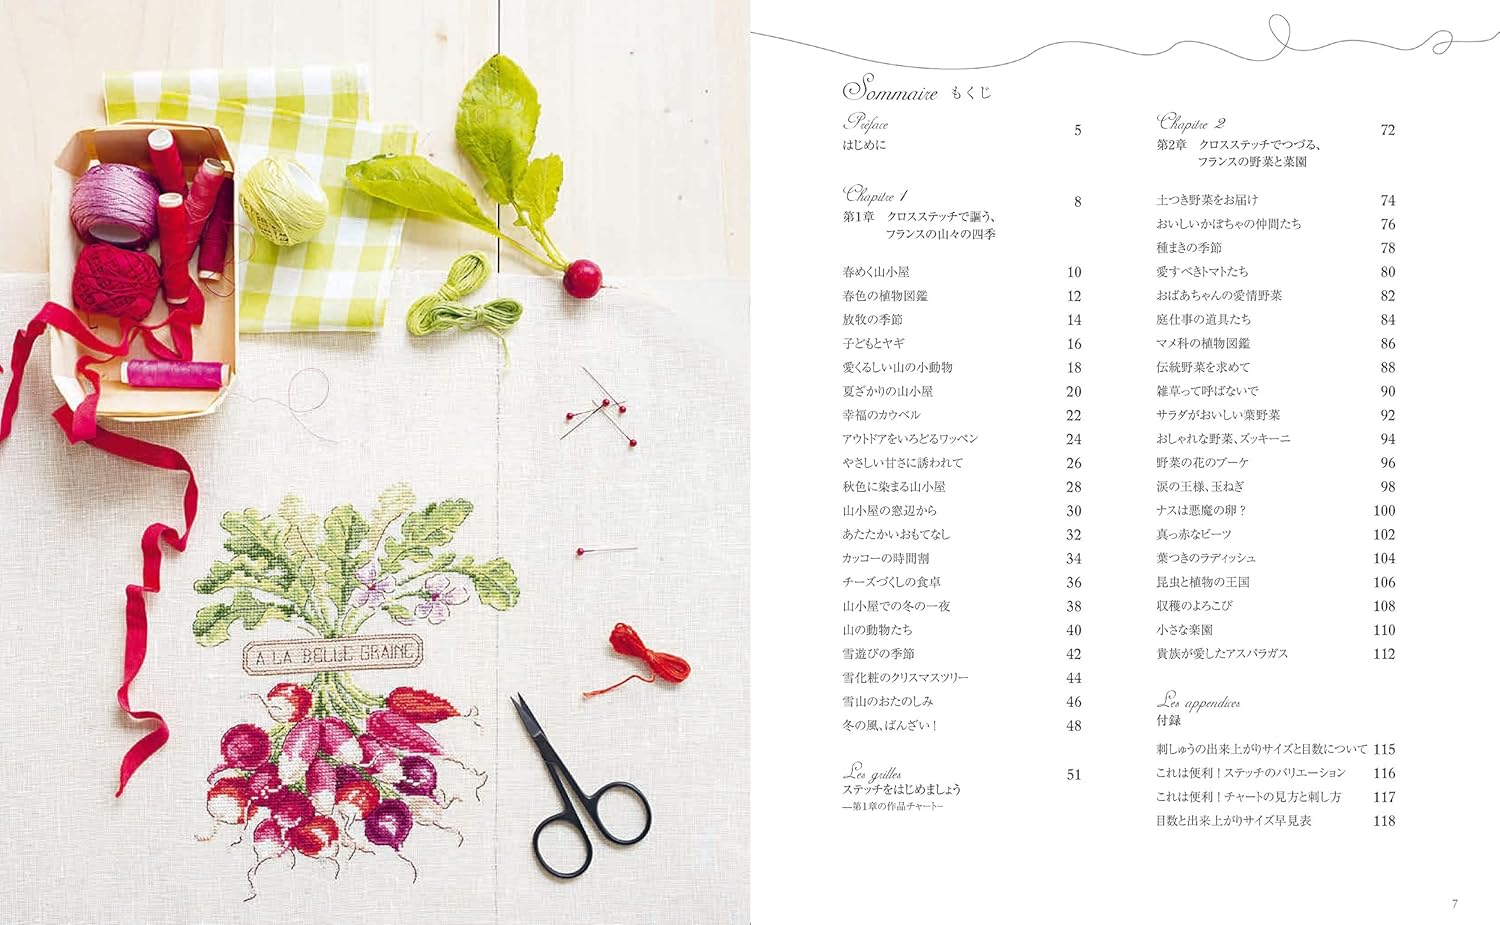 A LA BELLE GRAINE
Sommaire もくじ
Préface 5
はじめに
Chapitre 1 8
第1章 クロスステッチで謳う、
フランスの山々の四季
春めく山小屋 10
春色の植物図鑑 12
放牧の季節 14
子どもとヤギ 16
愛くるしい山の小動物 18
夏ざかりの山小屋 20
幸福のカウベル 22
アウトドアをいろどるワッペン 24
やさしい甘さに誘われて 26
秋色に染まる山小屋 28
山小屋の窓辺から 30
あたたかいおもてなし 32
カッコーの時間割 34
チーズづくしの食卓 36
山小屋での冬の一夜 38
山の動物たち 40
雪遊びの季節 42
雪化粧のクリスマスツリー 44
雪山のおたのしみ 46
冬の風、ばんざい! 48
Les grilles 51
ステッチをはじめましょう
―第1章の作品チャート―
Chapitre 2 72
第2章 クロスステッチでつづる、
フランスの野菜と菜園
土つき野菜をお届け 74
おいしいかぼちゃの仲間たち 76
種まきの季節 78
愛すべきトマトたち 80
おばあちゃんの愛情野菜 82
庭仕事の道具たち 84
マメ科の植物図鑑 86
伝統野菜を求めて 88
雑草って呼ばないで 90
サラダがおいしい葉野菜 92
おしゃれな野菜、ズッキーニ 94
野菜の花のブーケ 96
涙の王様、玉ねぎ 98
ナスは悪魔の卵? 100
真っ赤なビーツ 102
葉つきのラディッシュ 104
昆虫と植物の王国 106
収穫のよろこび 108
小さな楽園 110
貴族が愛したアスパラガス 112
Les appendices
付録
刺しゅうの出来上がりサイズと目数について 115
これは便利!ステッチのバリエーション 116
これは便利!チャートの見方と刺し方 117
目数と出来上がりサイズ早見表 118
7